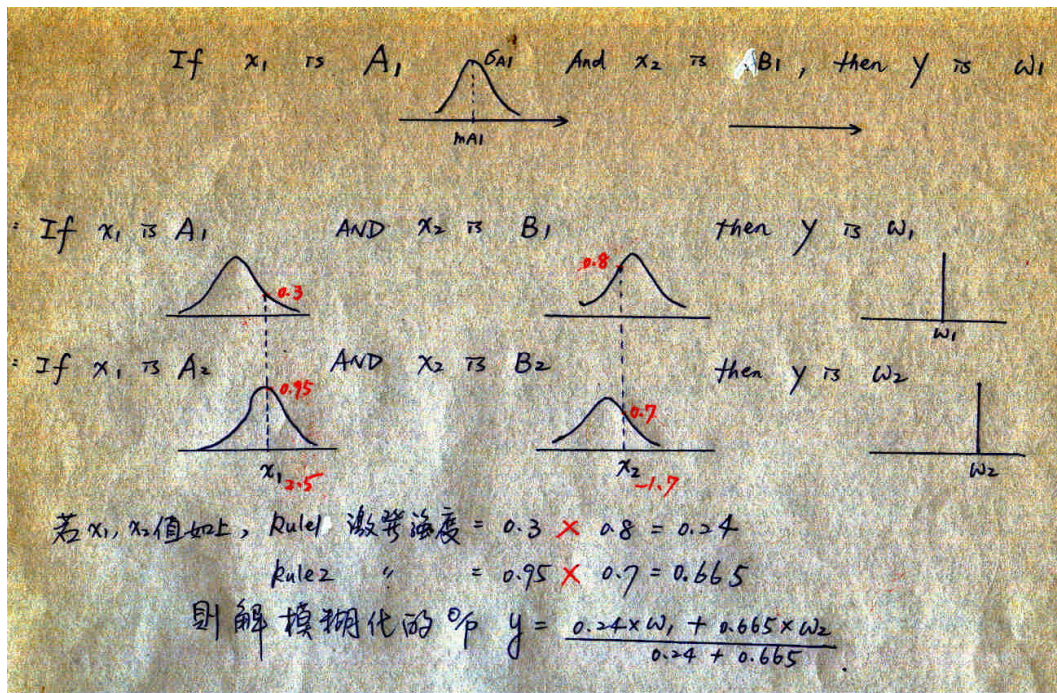 If x₁ is A₁ σA1 And x₂ is B₁, then y is ω₁
mA1
: If x₁ is A₁ AND x₂ is B₁ then y is ω₁
0.3 0.8
ω₁
: If x₁ is A₂ AND x₂ is B₂ then y is ω₂
0.95 0.7
x₁ 2.5 x₂ -1.7 ω₂
若 x₁, x₂值如上, Rule1 激發強度 = 0.3 × 0.8 = 0.24
Rule2 〃 = 0.95 × 0.7 = 0.665
則解模糊化的 o/p y = (0.24×ω₁ + 0.665×ω₂) / (0.24 + 0.665)